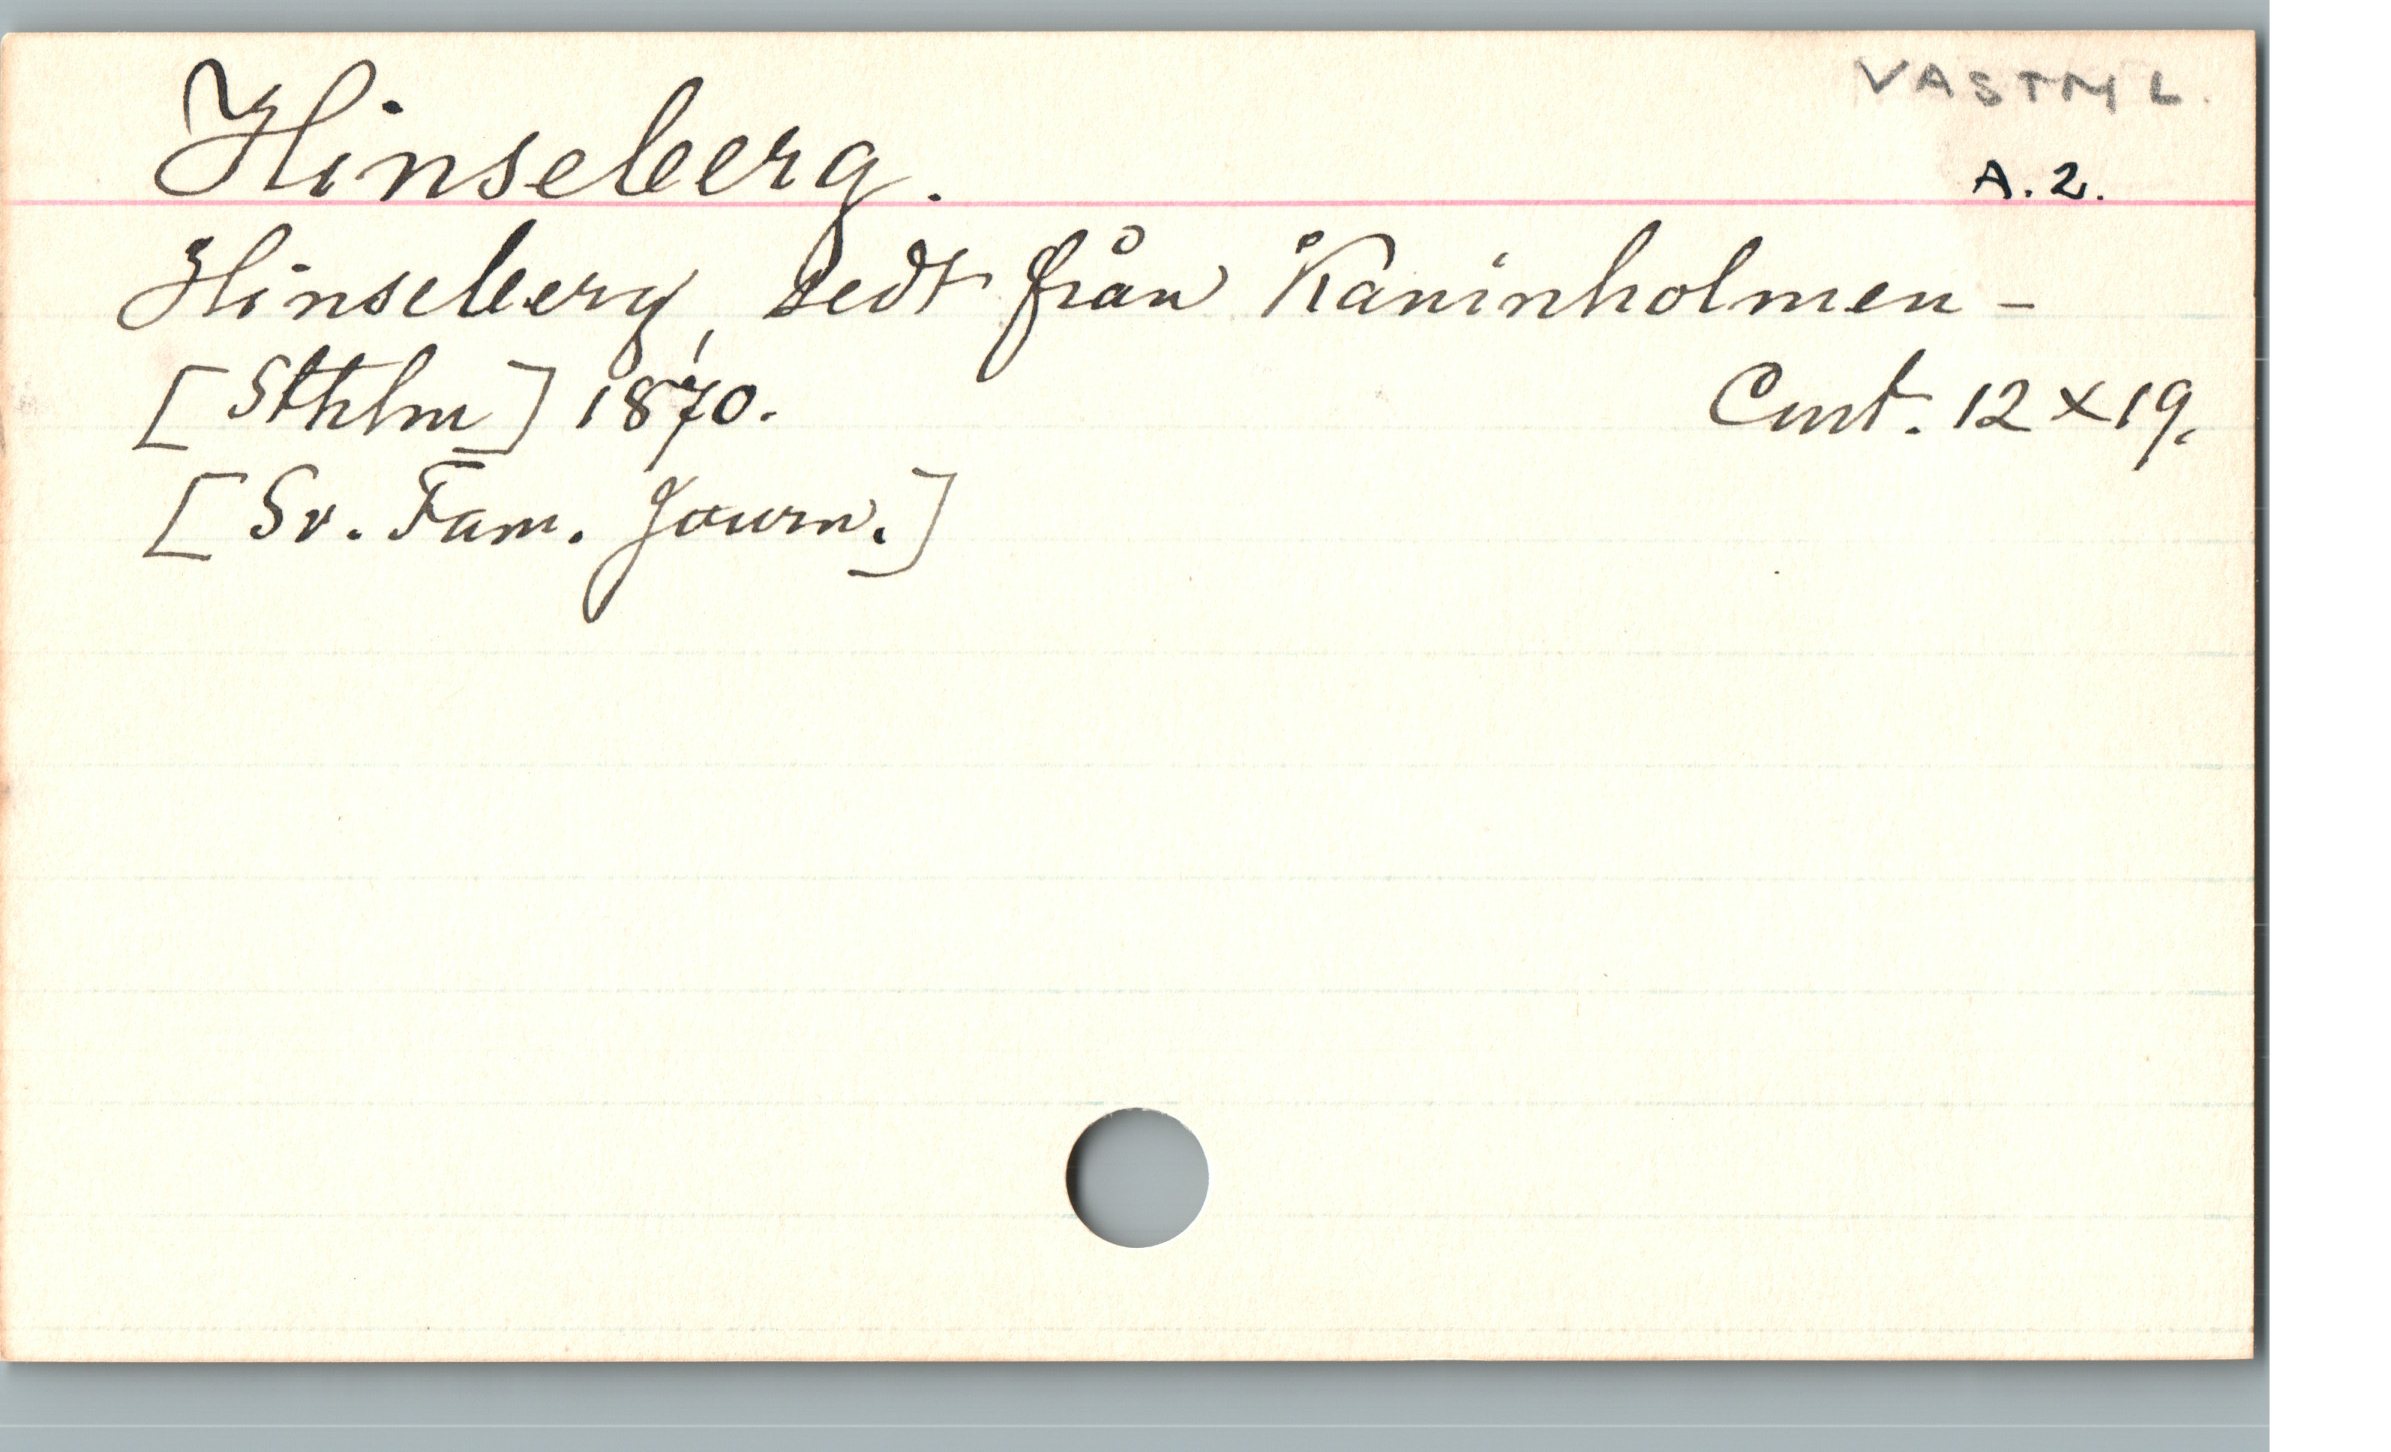 VASTML.
Hinseberg.
A.2.
Hinseberg, sedt från Kaninholmen –
[Sthlm] 1870.
Cmt. 12 x 19.
[Sv. Fam. Journ.]